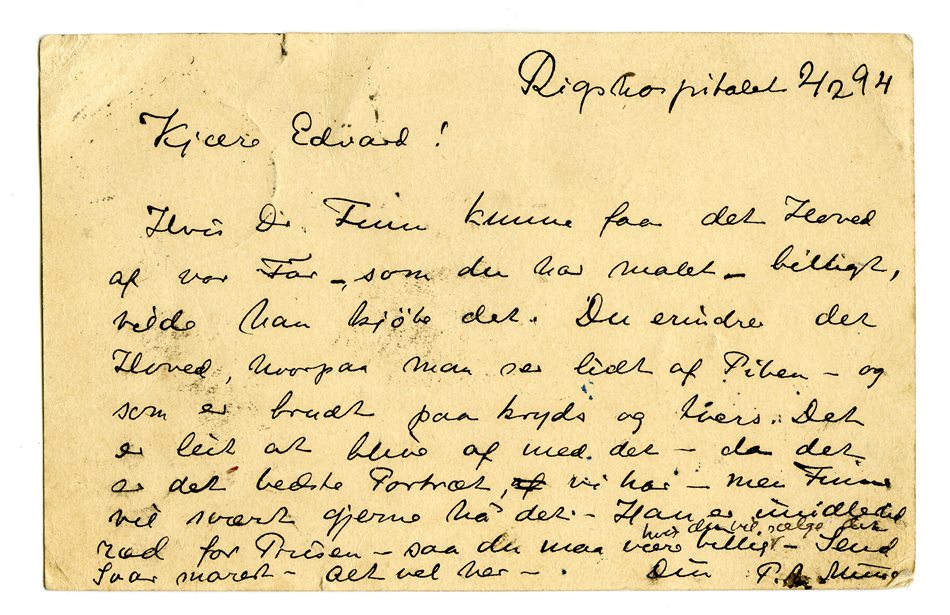 Rigshospitalet 2/2 94
Kjære Edvard!
Hvis Dr. Finn kunne faa det Hoved
af vor Far –, som du har malet – billigt,
vilde han kjöbe det. Du erindrer det
Hoved, hvorpaa man ser lidt af Piben – og
som er brudt paa kryds og tvers. Det
er leit at blive af med det – da det
er det bedste Portræt, vi har – men Finn
vil svært gjerne ha det. – Han er imidlertid
ræd for Prisen – saa du maa være billig – Send
hvis du vil sælge det
Svar snarest – Alt vel her –. Din P. A. Munch